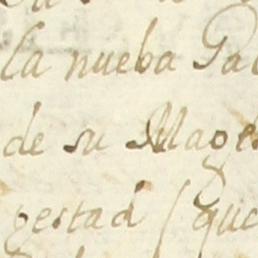 la nueba
de su Mages
gestad (que